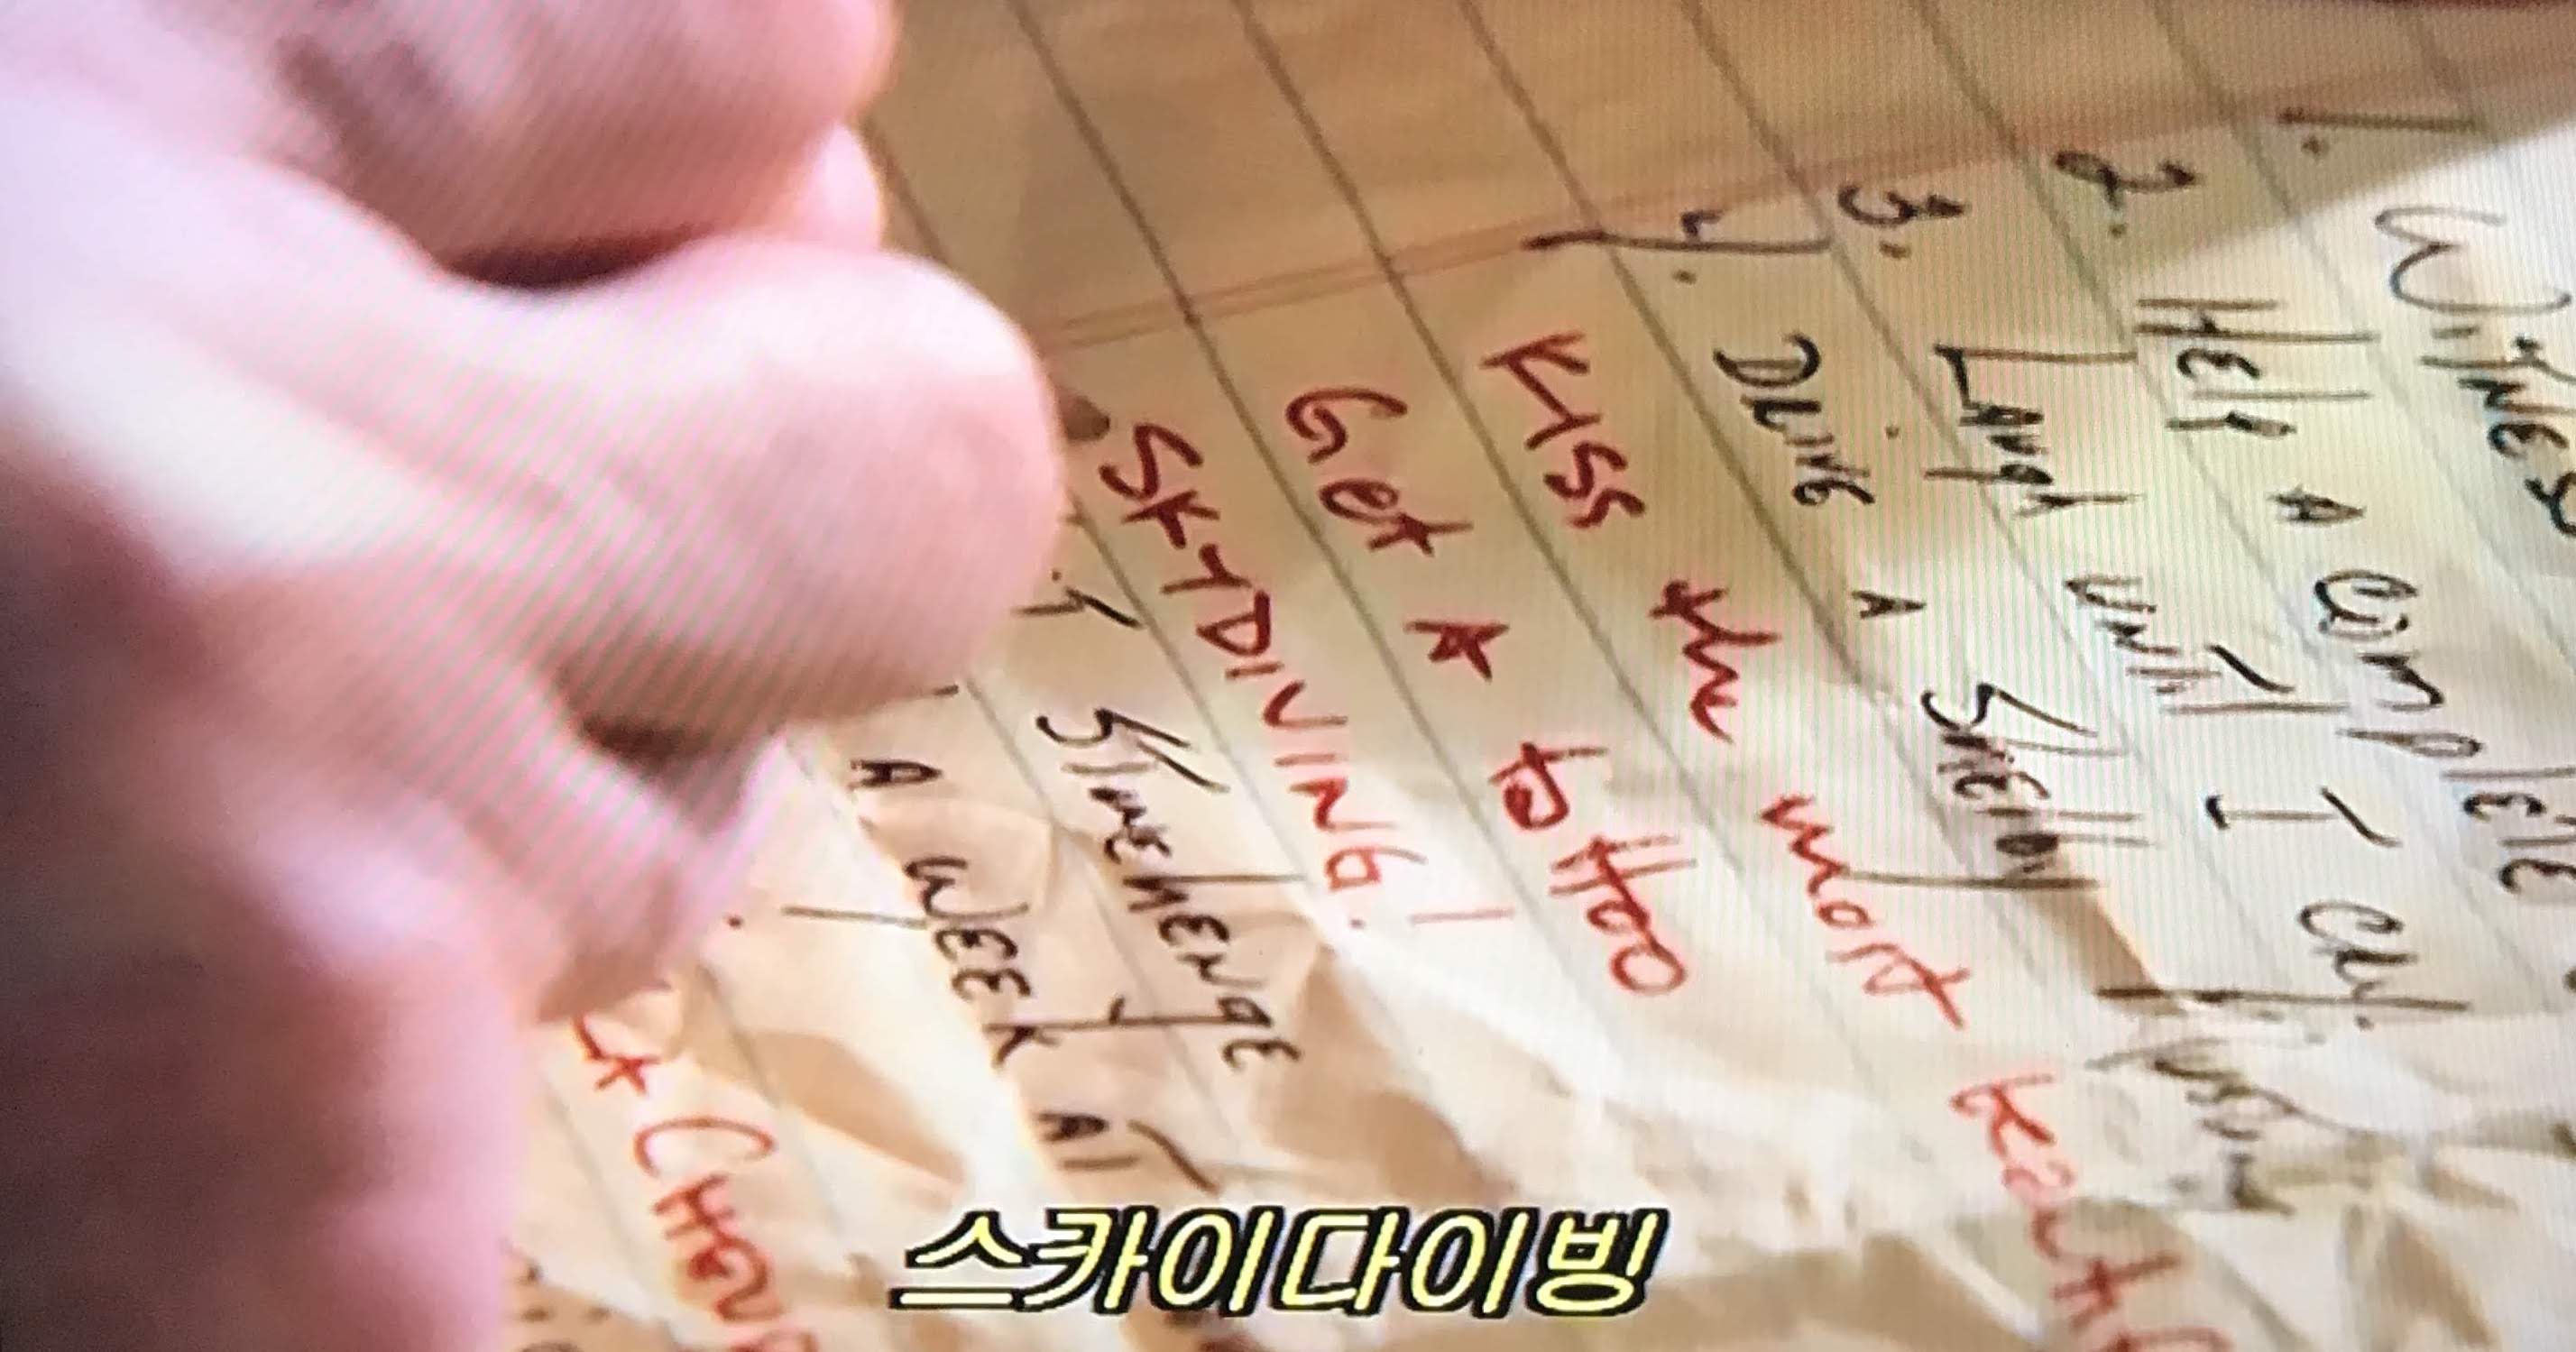 1. Witness
2. Help A Complete
3. Laugh until I cry.
4. Drive A Shelby
Kiss the most
Get A tattoo
SKYDIVING!
Stonehenge
A WEEK AT
스카이다이빙